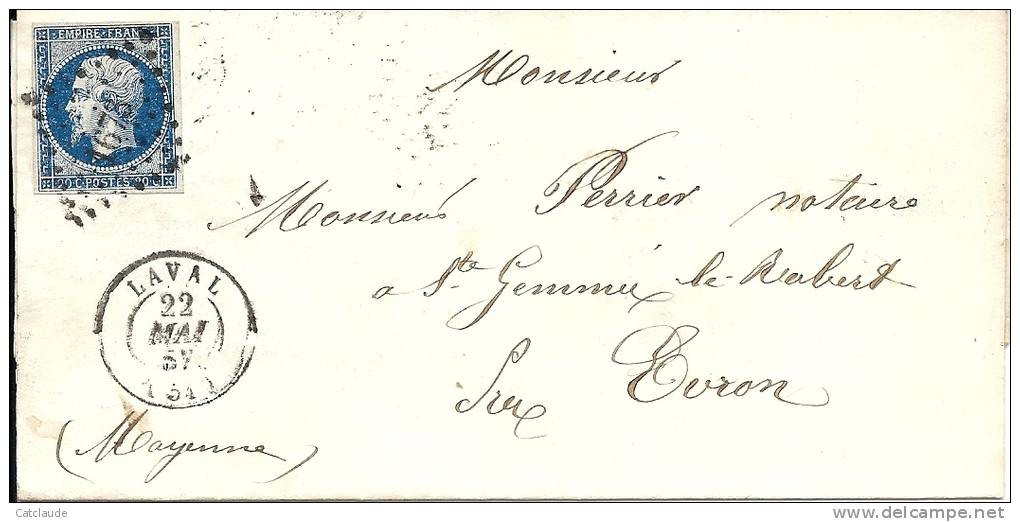 EMPIRE FRANC
20 C. POSTES 20 C
Monsieur
Monsieur Perrier notaire
a Ste Gemme le Robert
Sur Evron
(Mayenne)
LAVAL
22
MAI
57
(51)
Catclaude
www.delcampe.net